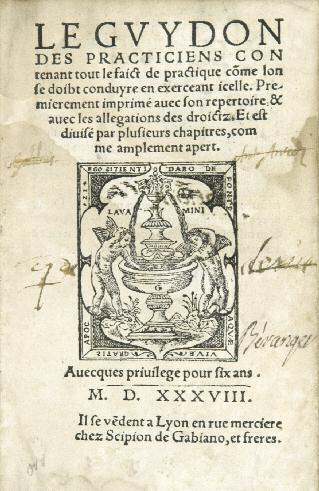 LE GVYDON
DES PRACTICIENS CON
tenant tout le faict de practique cõme lon
se doibt conduyre en exerceant icelle. Pre-
mierement imprimé auec son repertoire, &
auec les allegations des droictz. Et est
diuisé par plusieurs chapitres, com
me amplement apert.
EGO SITIENTI DABO DE
FONTE
LAVA MINI
AQVÆ
VIVÆ GRATIS
APOC
G
Béranger
Auecques priuilege pour six ans.
M. D. XXXVIII.
Il se vẽdent a Lyon en rue merciere
chez Scipion de Gabiano, et freres.